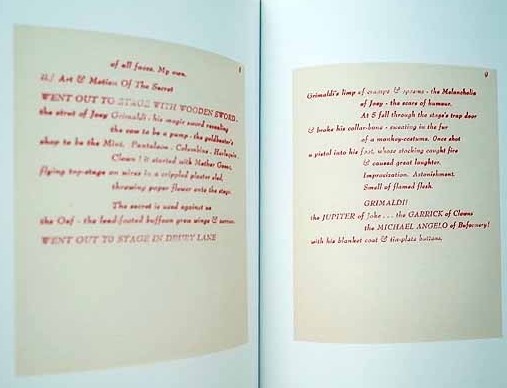 8
of all faces. My own.
ii./ Art & Motion Of The Secret
WENT OUT TO STAGE WITH WOODEN SWORD.
the strut of Joey Grimaldi : his magic sword revealing
the cow to be a pump - the
shop to be the Mint. Pantaloon. Columbine. Harlequin.
Clown ! It started with Mother Goose,
flying top-stage on wires in a crippled plaster
throwing paper flower onto the stage.
The secret is used against us
the Oaf - the lead-footed buffoon grew wings &
WENT OUT TO STAGE IN DRURY LANE
9
Grimaldi's limp of cramps & spasms - the Melancholia
of Joey - the scars of humour.
At 5 fell through the stage's trap door
& broke his collar-bone - sweating in the fur
of a monkey-costume. Once shot
a pistol into his foot, whose stocking caught fire
& caused great laughter.
Improvization. Astonishment.
Smell of flamed flesh.
GRIMALDI!
the JUPITER of Joke . . . the GARRICK of Clowns
the MICHAEL ANGELO of Bufoonery!
with his blanket coat & tin-plate buttons.